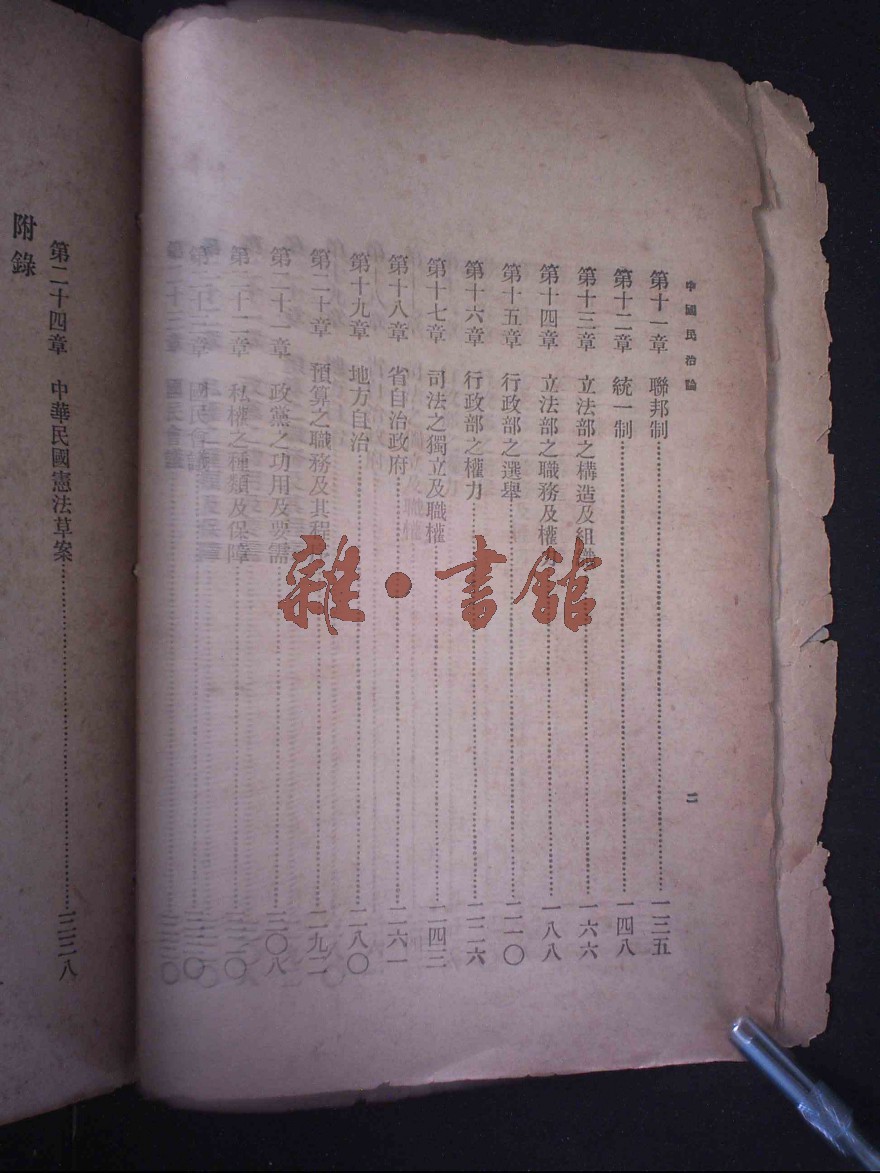 中國民治論
二
第十一章 聯邦制……一三五
第十二章 統一制……一四八
第十三章 立法部之構造及組織……一六六
第十四章 立法部之職務及權力……一八八
第十五章 行政部之選舉……二一〇
第十六章 行政部之權力……二二六
第十七章 司法之獨立及職權……二四三
第十八章 省自治政府……二六一
第十九章 地方自治……二八〇
第二十章 預算之職務及其程……二九二
第二十一章 政黨之功用及要需……三〇八
第二十二章 私權之種類及保障……三二〇
第二十三章 國民會議……三三〇
第二十四章 中華民國憲法草案……三三八
附錄
雜·書館